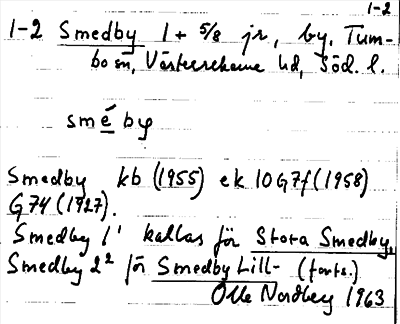 1-2
1-2 Smedby 1 + 5/8 jr, by. Tum-
bo sn, Västerrekarne hd, Söd. l.
smé̱ by
Smedby kb (1955) ek 10G7f (1958)
G74 (1927).
Smedby 1¹ kallas för Stora Smedby,
Smedby 2² för Smedby Lill- (forts.)
Olle Nordberg 1963